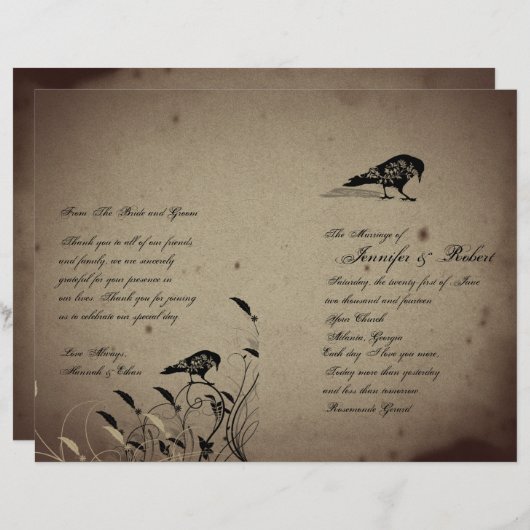 From The Bride and Groom
Thank you to all of our friends
and family, we are sincerely
grateful for your presence in
our lives. Thank you for joining
us to celebrate our special day.
Love Always,
Hannah & Ethan
The Marriage of
Jennifer & Robert
Saturday, the twenty-first of June
two thousand and fourteen
Your Church
Atlanta, Georgia
Each day I love you more,
Today more than yesterday
and less than tomorrow.
Rosemonde Gerard